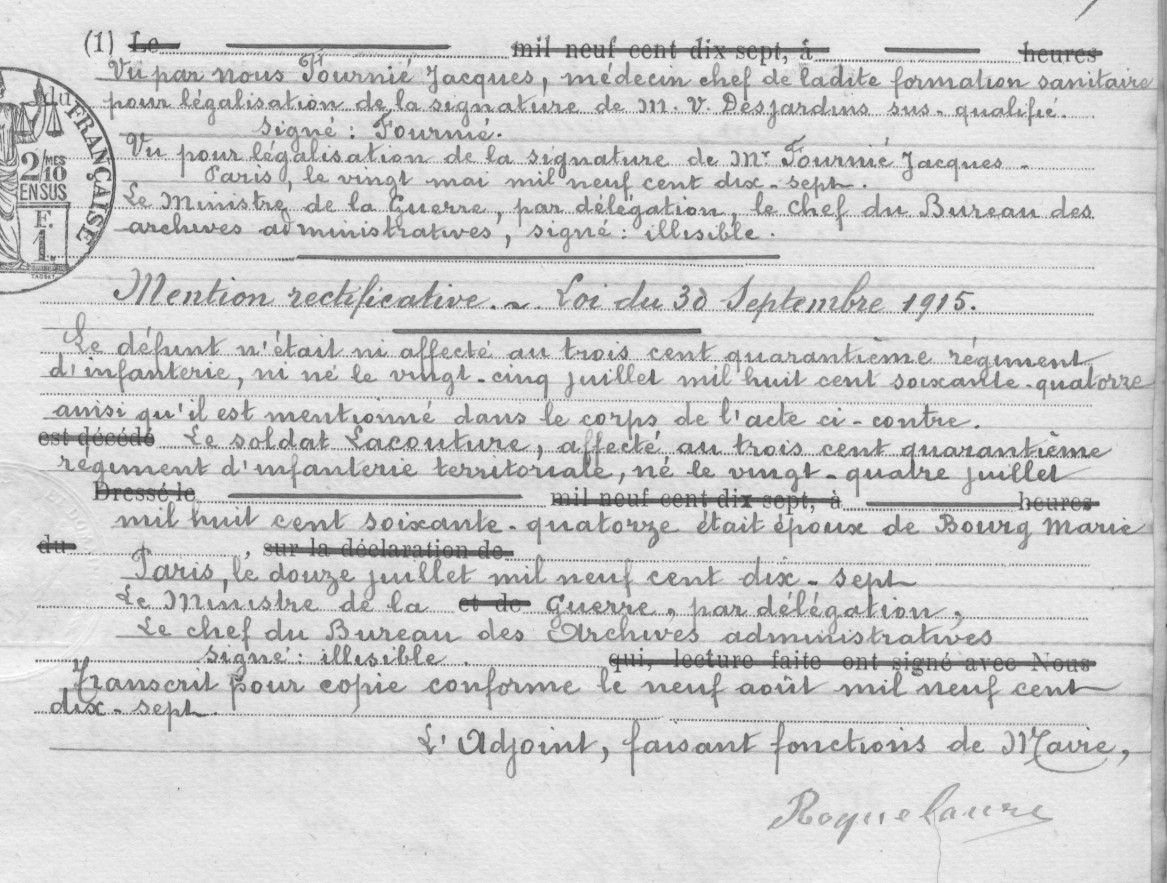 (1) Le mil neuf cent dix sept, à heures
Vu par nous Fournié Jacques, médecin chef de ladite formation sanitaire
pour légalisation de la signature de M. V. Desjardins sus-qualifié.
signé : Fournié.
Vu pour légalisation de la signature de Mr Fournié Jacques -
Paris, le vingt mai mil neuf cent dix-sept.
Le Ministre de la Guerre, par délégation, le Chef du Bureau des
archives administratives, signé : illisible.
du FRANÇAISE
2/10 MES
EN SUS
F.
1.
Mention rectificative. ~ Loi du 30 Septembre 1915.
Le défunt n'était ni affecté au trois cent quarantième régiment
d'infanterie, ni né le vingt-cinq juillet mil huit cent soixante-quatorze
ainsi qu'il est mentionné dans le corps de l'acte ci-contre.
est décédé Le soldat Lacouture, affecté au trois cent quarantième
régiment d'infanterie territoriale, né le vingt-quatre juillet
Dressé le mil neuf cent dix sept, à heures
mil huit cent soixante-quatorze était époux de Bourg Marie
du , sur la déclaration de
Paris, le douze juillet mil neuf cent dix-sept
Le Ministre de la et de Guerre, par délégation,
Le chef du Bureau des Archives administratives
signé : illisible. qui, lecture faite ont signé avec Nous
Transcrit pour copie conforme le neuf août mil neuf cent
dix-sept.
L'Adjoint, faisant fonctions de Maire,
Roquelaure